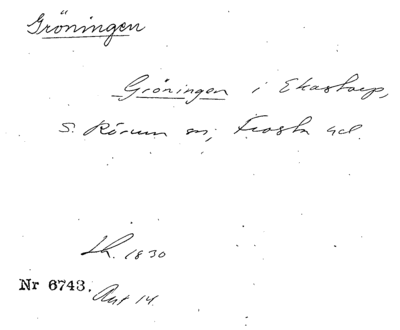 Gröningen
Gröningen i Ekastorp,
S. Rörum sn, Frosta hd.
Lh. 1830
Nr 6743. Ant 14.